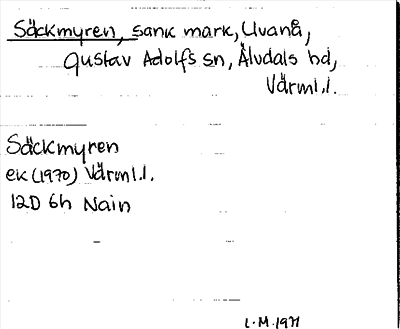 Säckmyren, sank mark, Uvanå,
Gustav Adolfs sn, Älvdals hd,
Värml.l.
Säckmyren
ek (1970) Värml.l.
12D 6h Nain
L.M. 1971